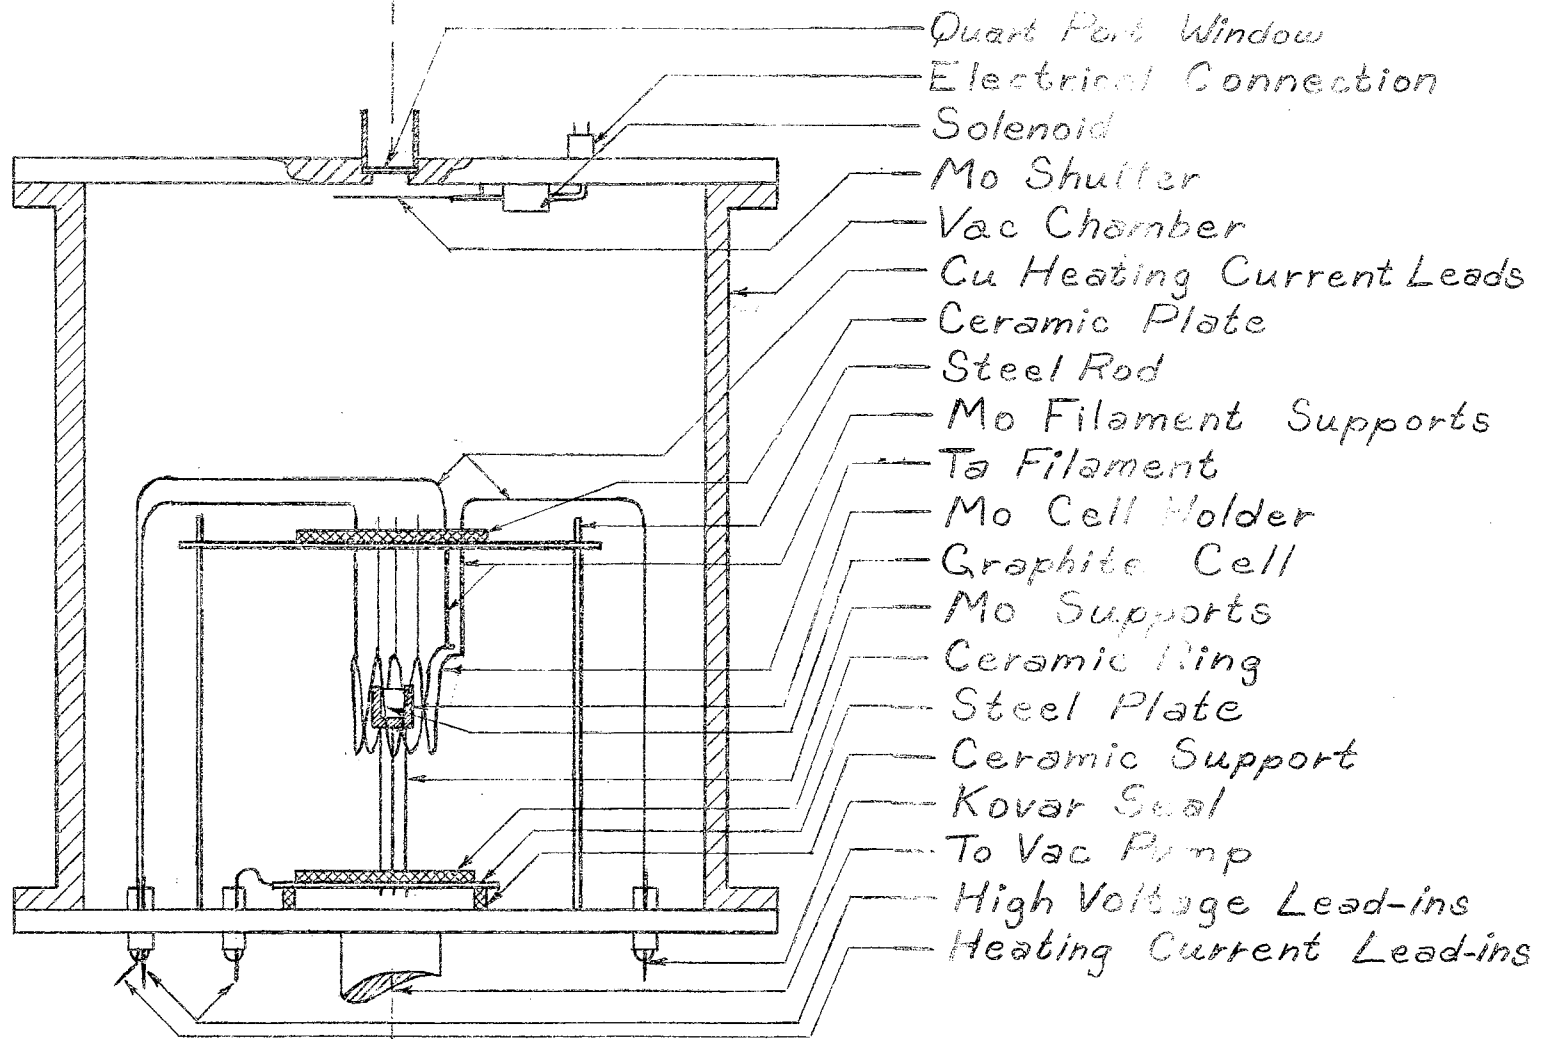 Quart Port Window
Electrical Connection
Solenoid
Mo Shutter
Vac Chamber
Cu Heating Current Leads
Ceramic Plate
Steel Rod
Mo Filament Supports
Ta Filament
Mo Cell Holder
Graphite Cell
Mo Supports
Ceramic Ring
Steel Plate
Ceramic Support
Kovar Seal
To Vac Pump
High Voltage Lead-ins
Heating Current Lead-ins